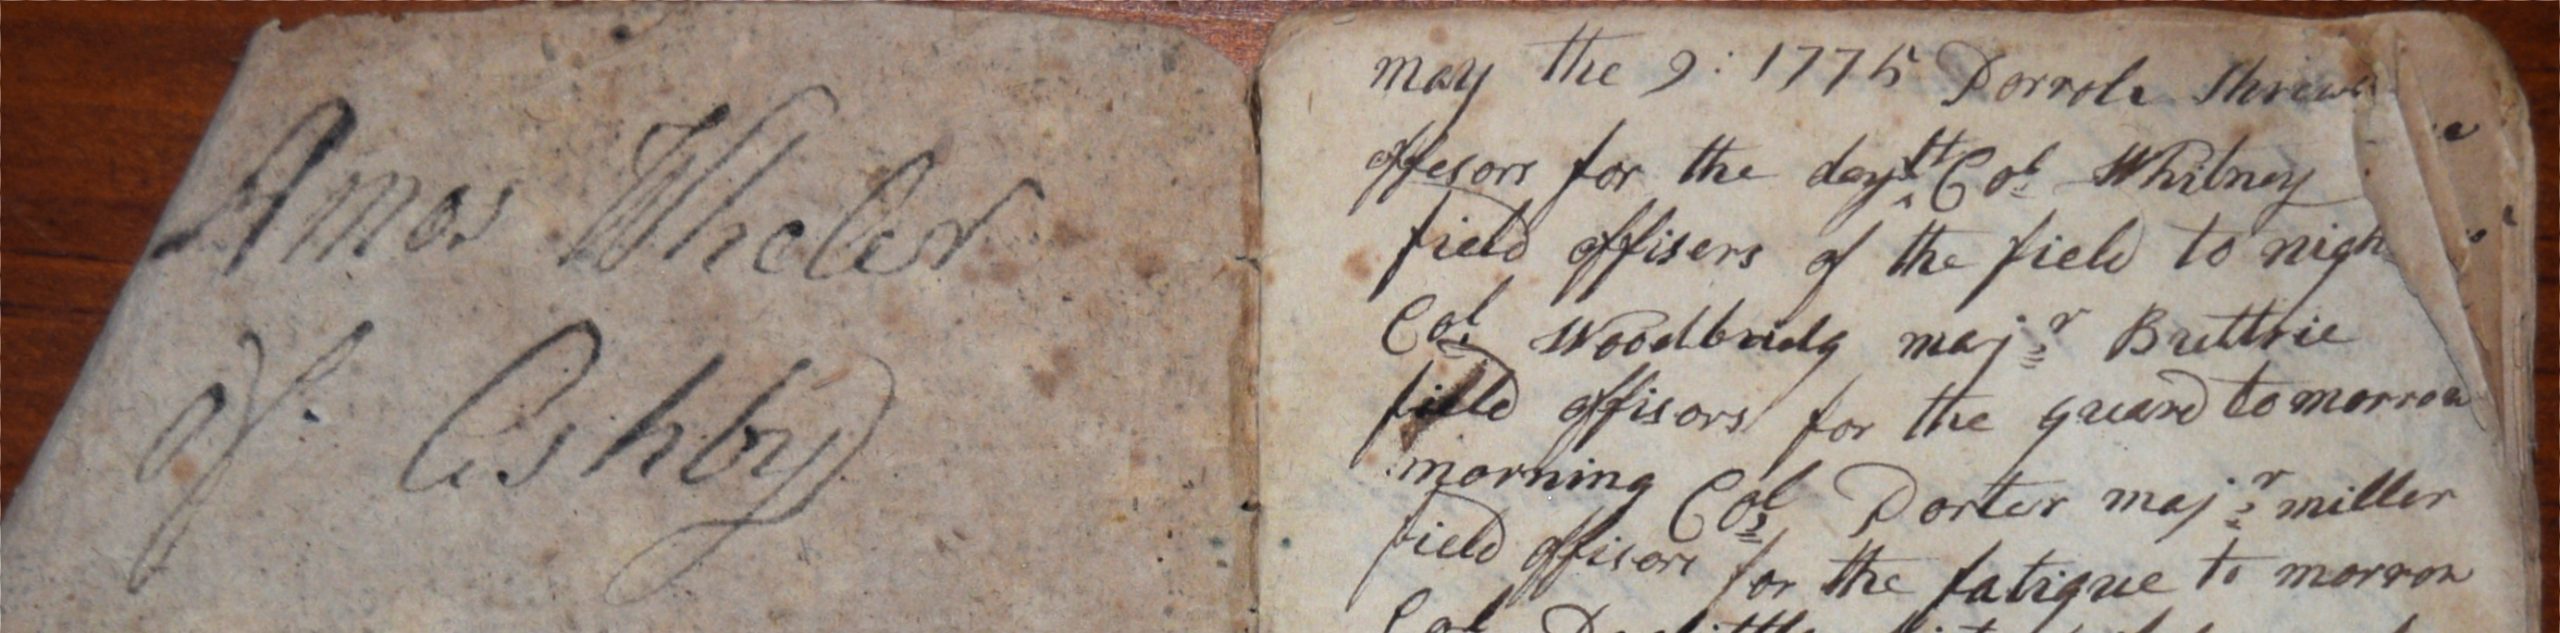 Amos Wheler
of Ashby
may the 9: 1775 Porrole Shrews
offesors for the day Lt Col Whitney
field offisers of the field to nigh
Col Woodbridg majr Buttrie
field offisors for the guard to morrow
morning Col Porter majr miller
field offisors for the fatigue to morrow
Col